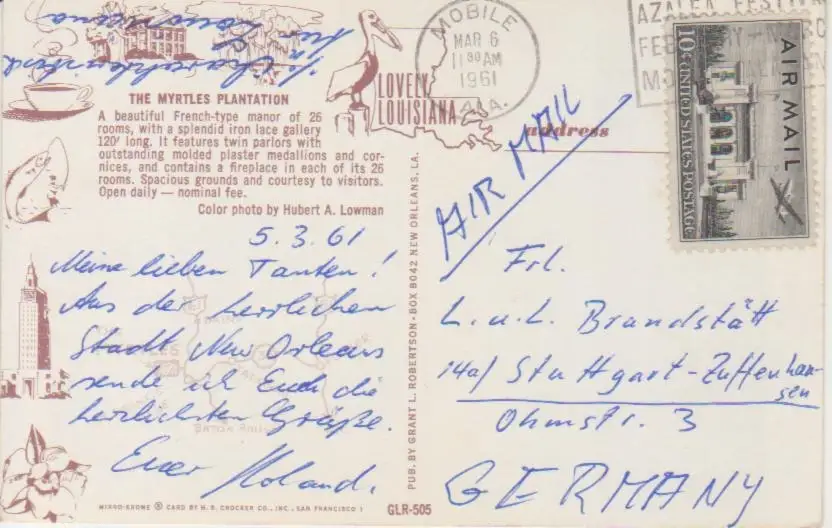 MOBILE
MAR 6
11 30 AM
1961
ALA.
AZALEA FESTIV
AIR MAIL
10¢ UNITED STATES POSTAGE
LOVELY
LOUISIANA
address
THE MYRTLES PLANTATION
A beautiful French-type manor of 26
rooms, with a splendid iron lace gallery
120' long. It features twin parlors with
outstanding molded plaster medallions and cor-
nices, and contains a fireplace in each of its 26
rooms. Spacious grounds and courtesy to visitors.
Open daily — nominal fee.
Color photo by Hubert A. Lowman
5.3.61
Meine lieben Tanten!
Aus der herrlichen
Stadt New Orleans
sende ich Euch die
herzlichsten Grüße.
Euer Roland.
PUB. BY GRANT L. ROBERTSON - BOX 8042 NEW ORLEANS, LA.
AIR MAIL
Frl.
L. u. L. Brandstätt
14a) Stuttgart-Zuffenhau-
sen
Ohmstr. 3
GERMANY
MIRRO-KROME ® CARD BY H. S. CROCKER CO., INC., SAN FRANCISCO 1
GLR-505